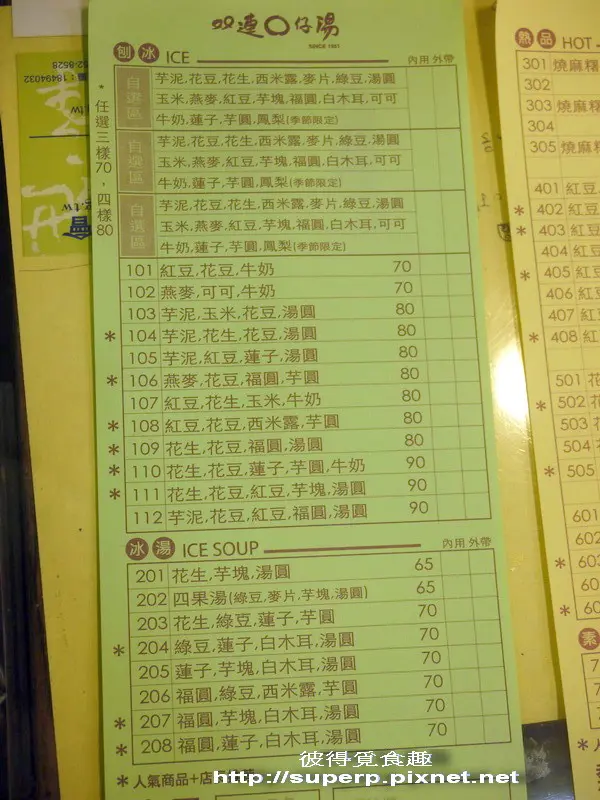 双連〇仔湯
SINCE 1951
刨冰 ICE 內用 外帶
*任選三樣70,四樣80
自選區
芋泥,花豆,花生,西米露,麥片,綠豆,湯圓
玉米,燕麥,紅豆,芋塊,福圓,白木耳,可可
牛奶,蓮子,芋圓,鳳梨(季節限定)
自選區
芋泥,花豆,花生,西米露,麥片,綠豆,湯圓
玉米,燕麥,紅豆,芋塊,福圓,白木耳,可可
牛奶,蓮子,芋圓,鳳梨(季節限定)
自選區
芋泥,花豆,花生,西米露,麥片,綠豆,湯圓
玉米,燕麥,紅豆,芋塊,福圓,白木耳,可可
牛奶,蓮子,芋圓,鳳梨(季節限定)
101 紅豆,花豆,牛奶 70
102 燕麥,可可,牛奶 70
103 芋泥,玉米,花豆,湯圓 80
* 104 芋泥,花生,花豆,湯圓 80
105 芋泥,紅豆,蓮子,湯圓 80
* 106 燕麥,花豆,福圓,芋圓 80
107 紅豆,花生,玉米,牛奶 80
* 108 紅豆,花豆,西米露,芋圓 80
* 109 花生,花豆,福圓,湯圓 80
* 110 花生,花豆,蓮子,芋圓,牛奶 90
* 111 花生,花豆,紅豆,芋塊,湯圓 90
112 芋泥,花豆,紅豆,福圓,湯圓 90
冰湯 ICE SOUP 內用 外帶
201 花生,芋塊,湯圓 65
202 四果湯(綠豆,麥片,芋塊,湯圓) 65
203 花生,綠豆,蓮子,芋圓 70
* 204 綠豆,蓮子,白木耳,湯圓 70
205 蓮子,芋塊,白木耳,湯圓 70
206 福圓,綠豆,西米露,芋圓 70
* 207 福圓,芋塊,白木耳,湯圓 70
* 208 福圓,蓮子,白木耳,湯圓 70
*人氣商品+店
熱品 HOT
301 燒麻糬
302
303 燒麻糬
304
305 燒麻糬
401 紅豆
* 402 紅豆
* 403 紅豆
404 紅豆
* 405 紅豆
406 紅豆
407 紅豆
* 408 紅豆
501 花
* 502 花
503 花
504 花
* 505
601
* 602
603
* 60
素
62-8528
18494032
彼得覓食趣
http://superp.pixnet.net